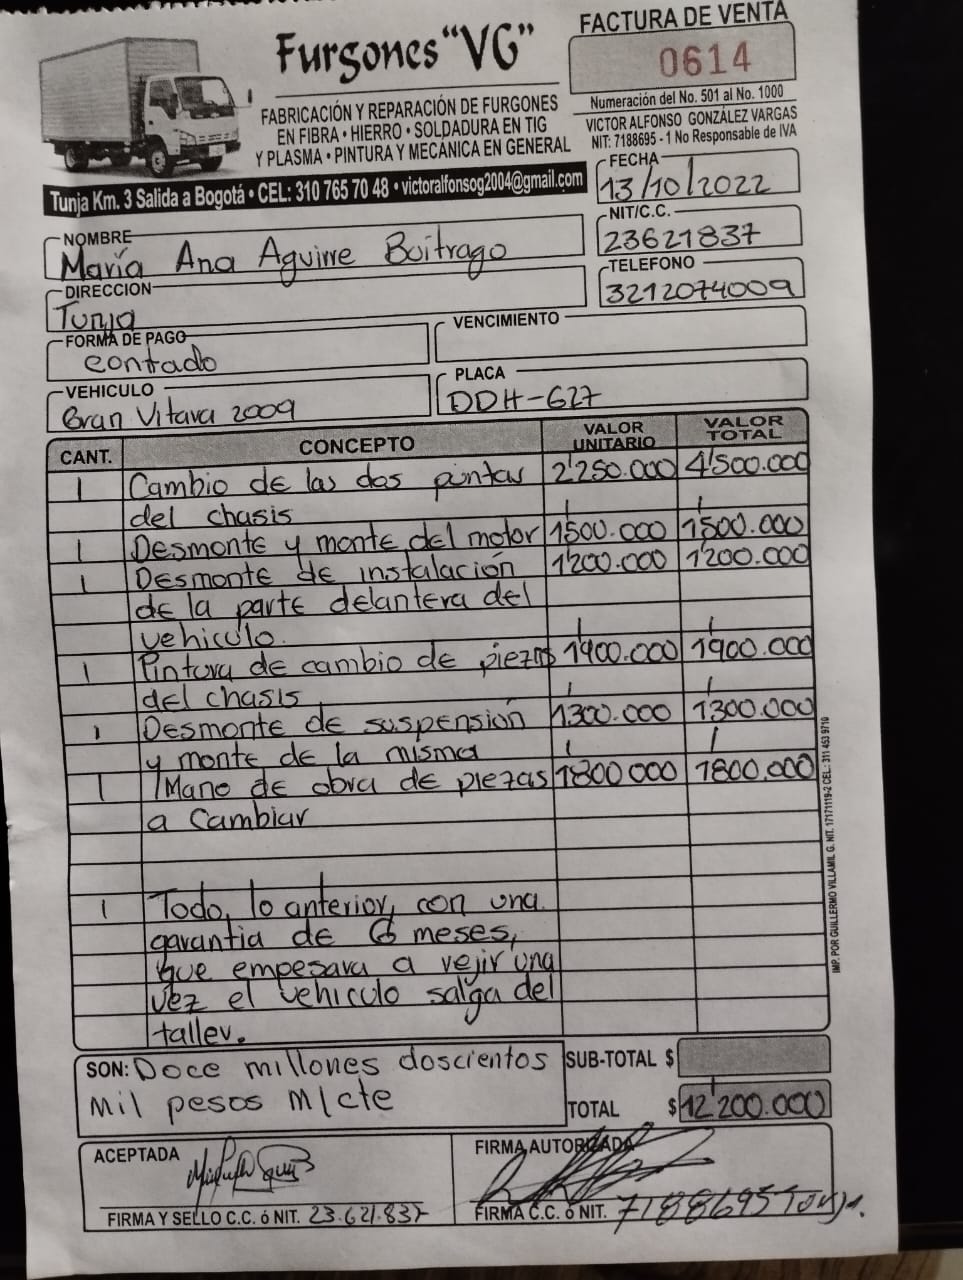 FACTURA DE VENTA
Furgones "VG"
0614
Numeración del No. 501 al No. 1000
FABRICACIÓN Y REPARACIÓN DE FURGONES
EN FIBRA • HIERRO • SOLDADURA EN TIG
Y PLASMA • PINTURA Y MECÁNICA EN GENERAL
VICTOR ALFONSO GONZÁLEZ VARGAS
NIT: 7188695 - 1 No Responsable de IVA
Tunja Km. 3 Salida a Bogotá • CEL: 310 765 70 48 • victoralfonsog2004@gmail.com
FECHA
13/10/2022
NOMBRE
María Ana Aguirre Boitrago
NIT/C.C.
23621837
DIRECCION
Tunja
TELEFONO
3212074009
FORMA DE PAGO
contado
VENCIMIENTO
VEHICULO
Gran Vitara 2009
PLACA
DDH-627
CANT. CONCEPTO VALOR UNITARIO VALOR TOTAL
1 Cambio de las dos puntas 2'250.000 4'500.000
del chasis
1 Desmonte y monte del motor 1'500.000 1'500.000
1 Desmonte de instalación 1'200.000 1'200.000
de la parte delantera del
vehiculo.
1 Pintura de cambio de piezas 1'900.000 1'900.000
del chasis
1 Desmonte de suspensión 1'300.000 1'300.000
y monte de la misma
1 Mano de obra de piezas 1'800.000 1'800.000
a Cambiar
1 Todo, lo anterior, con una
garantia de 6 meses,
que empesara a vejir una
vez el vehiculo salga del
taller.
SON: Doce millones doscientos
mil pesos M/cte
SUB-TOTAL $
TOTAL $ 12'200.000
ACEPTADA
FIRMA Y SELLO C.C. ó NIT. 23.621.837
FIRMA AUTORIZADA
FIRMA C.C. ó NIT. 7188695 Tunja.
IMP. POR GUILLERMO VILLAMIL G. NIT. 17171119-2 CEL.: 311 453 9710